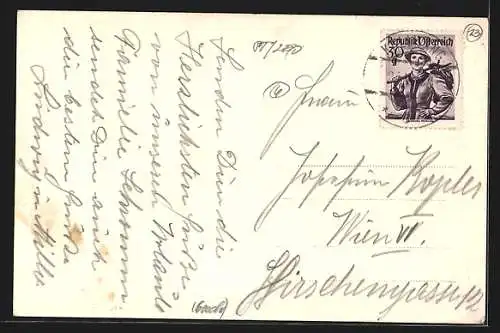 Senden Dir die
Herzlichsten Grüße
von unserem Urlaub
Familie
sendet Dir auch
die besten Grüße
Ludwig u. Mitzi
Republik Österreich
30
g
23
Frau
Josefine Kopler
Wien VI.
Hirschengasse 12